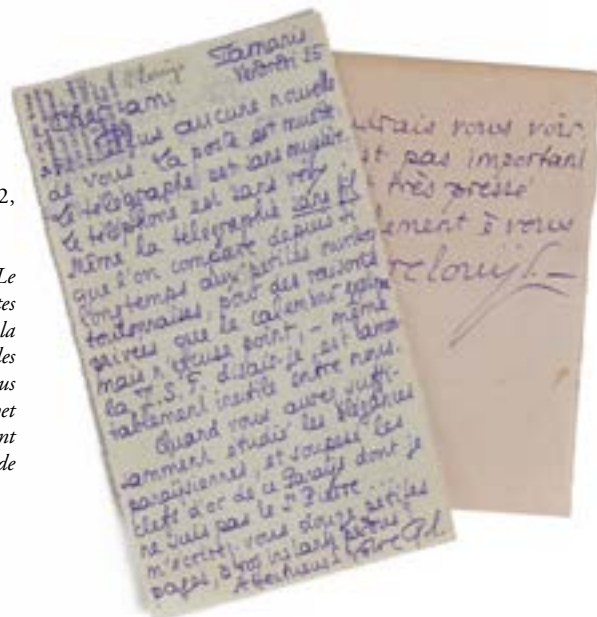 2,
Le
tes
la
les
us
et
nt
de
P. Louÿs
Tamaris
Vendredi 25
Cher ami
plus aucune nouvelle
de vous. La poste est muette
Le télégraphe est sans mystère
Le téléphone est sans voix,
Même la télégraphie sans fil
que l'on compare depuis si
longtemps aux petites
toulonnaises, pour des raisons
grivoises que le calembour
mais n'excuse point, – même
la T.S.F. disais-je, est lamen
tablement inutile entre nous.
Quand vous aurez suffi-
samment étudié les élégances
paradisiennes, et soupesé les
clefs d'or de ce Paradis dont je
ne suis pas le St Pierre
m'écrirez vous douze petites
pages, à vos instants perdus
Affectueux Votre P.L.
voudrais vous voir.
est pas important
très pressé
à vous
Pierre Louÿs. –